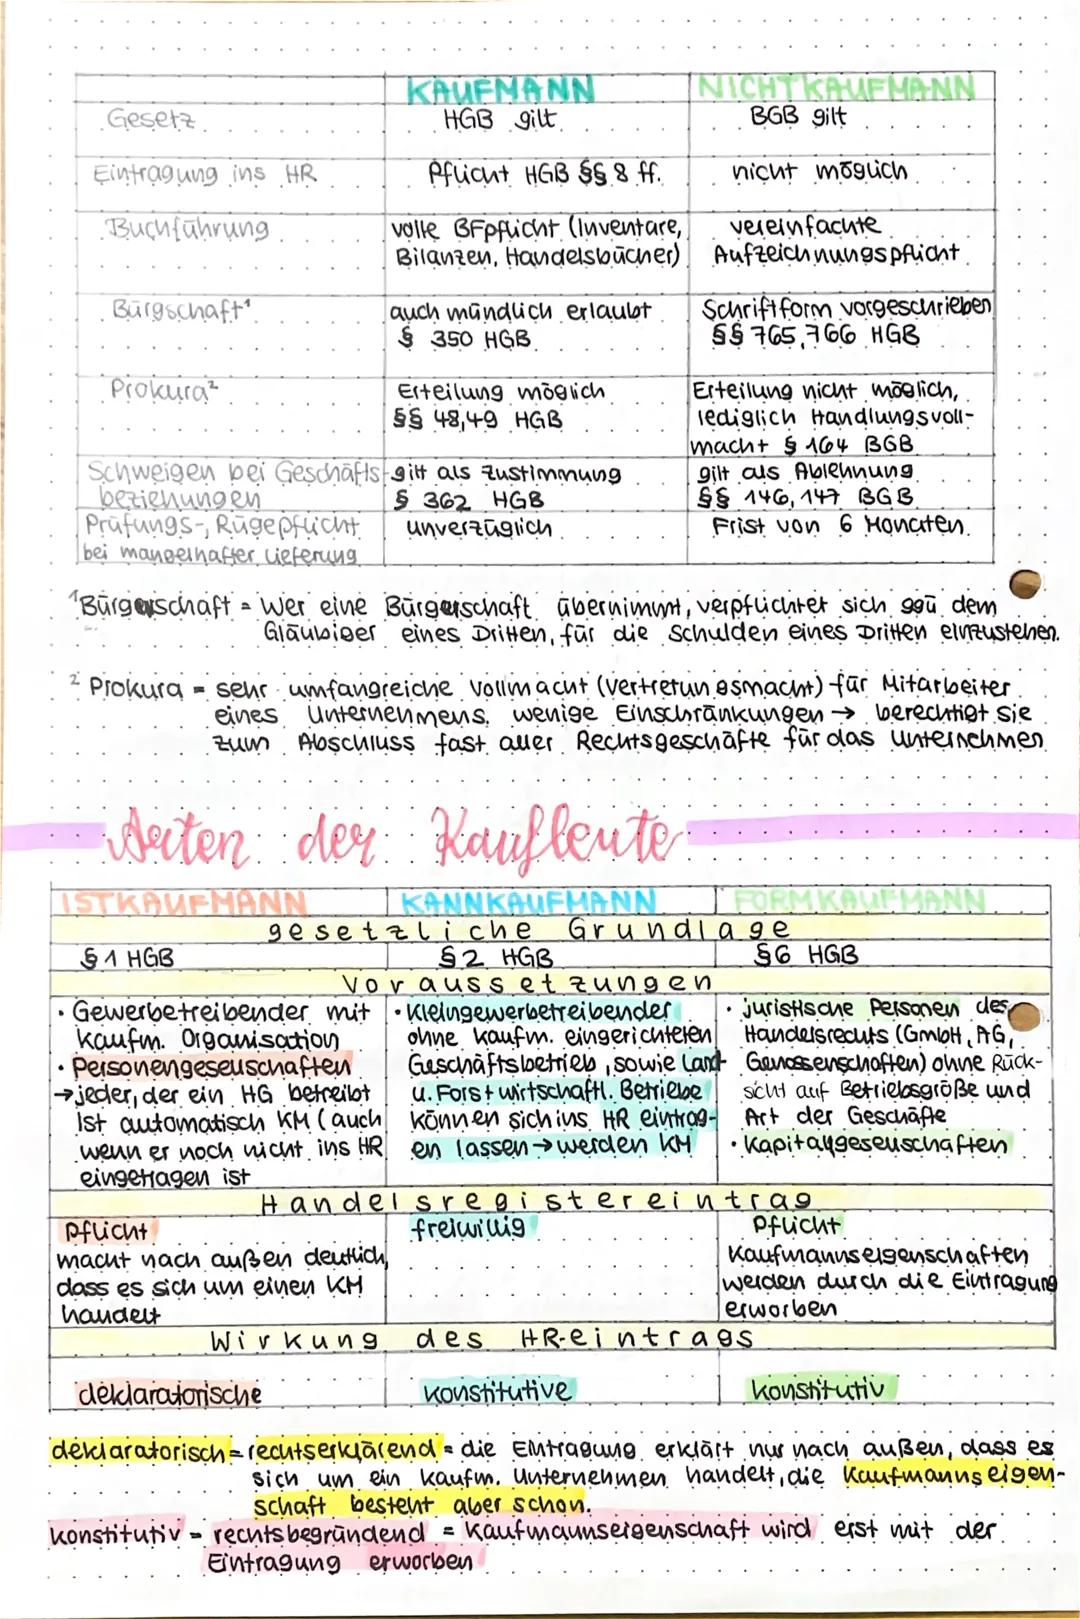 KAUFMANN NICHTKAUFMANN
Gesetz HGB gilt BGB gilt
Eintragung ins HR Pflicht HGB §§ 8 ff. nicht möglich
Buchführung volle BFpflicht (Inventare, vereinfachte
Bilanzen, Handelsbücher) Aufzeichnungspflicht
Bürgschaft¹ auch mündlich erlaubt Schriftform vorgeschrieben
§ 350 HGB §§ 765, 766 HGB
Prokura² Erteilung möglich Erteilung nicht möglich,
§§ 48,49 HGB lediglich Handlungsvoll-
macht § 164 BGB
Schweigen bei Geschäfts- gilt als Zustimmung gilt als Ablehnung
beziehungen § 362 HGB §§ 146, 147 BGB
Prüfungs-, Rügepflicht unverzüglich Frist von 6 Monaten
bei mangelhafter Lieferung
¹Bürgerschaft = Wer eine Bürgerschaft übernimmt, verpflichtet sich ggü dem
Gläubiger eines Dritten, für die Schulden eines Dritten einzustehen.
² Prokura = sehr umfangreiche Vollmacht (Vertretungsmacht) für Mitarbeiter
eines Unternehmens, wenige Einschränkungen → berechtigt sie
zum Abschluss fast aller Rechtsgeschäfte für das Unternehmen
Arten der Kaufleute
ISTKAUFMANN KANNKAUFMANN FORMKAUFMANN
gesetzliche Grundlage
§ 1 HGB § 2 HGB § 6 HGB
Voraussetzungen
· Gewerbetreibender mit · Kleingewerbetreibender · juristische Personen des
kaufm. Organisation ohne kaufm. eingerichteten Handelsrechts (GmbH, AG,
· Personengesellschaften Geschäftsbetrieb, sowie Land- Genossenschaften) ohne Rück-
→ jeder, der ein HG betreibt u. Forstwirtschaftl. Betriebe sicht auf Betriebsgröße und
ist automatisch KM (auch können sich ins HR eintrag- Art der Geschäfte
wenn er noch nicht ins HR en lassen → werden KM · Kapitalgesellschaften
eingetragen ist
Handelsregistereintrag
Pflicht freiwillig Pflicht
macht nach außen deutlich, Kaufmannseigenschaften
dass es sich um einen KM werden durch die Eintragung
handelt erworben
Wirkung des HR-eintrags
deklaratorische konstitutive konstitutiv
deklaratorisch = rechtserklärend = die Eintragung erklärt nur nach außen, dass es
sich um ein kaufm. Unternehmen handelt, die Kaufmannseigen-
schaft besteht aber schon.
konstitutiv = rechtsbegründend = Kaufmannseigenschaft wird erst mit der
Eintragung erworben